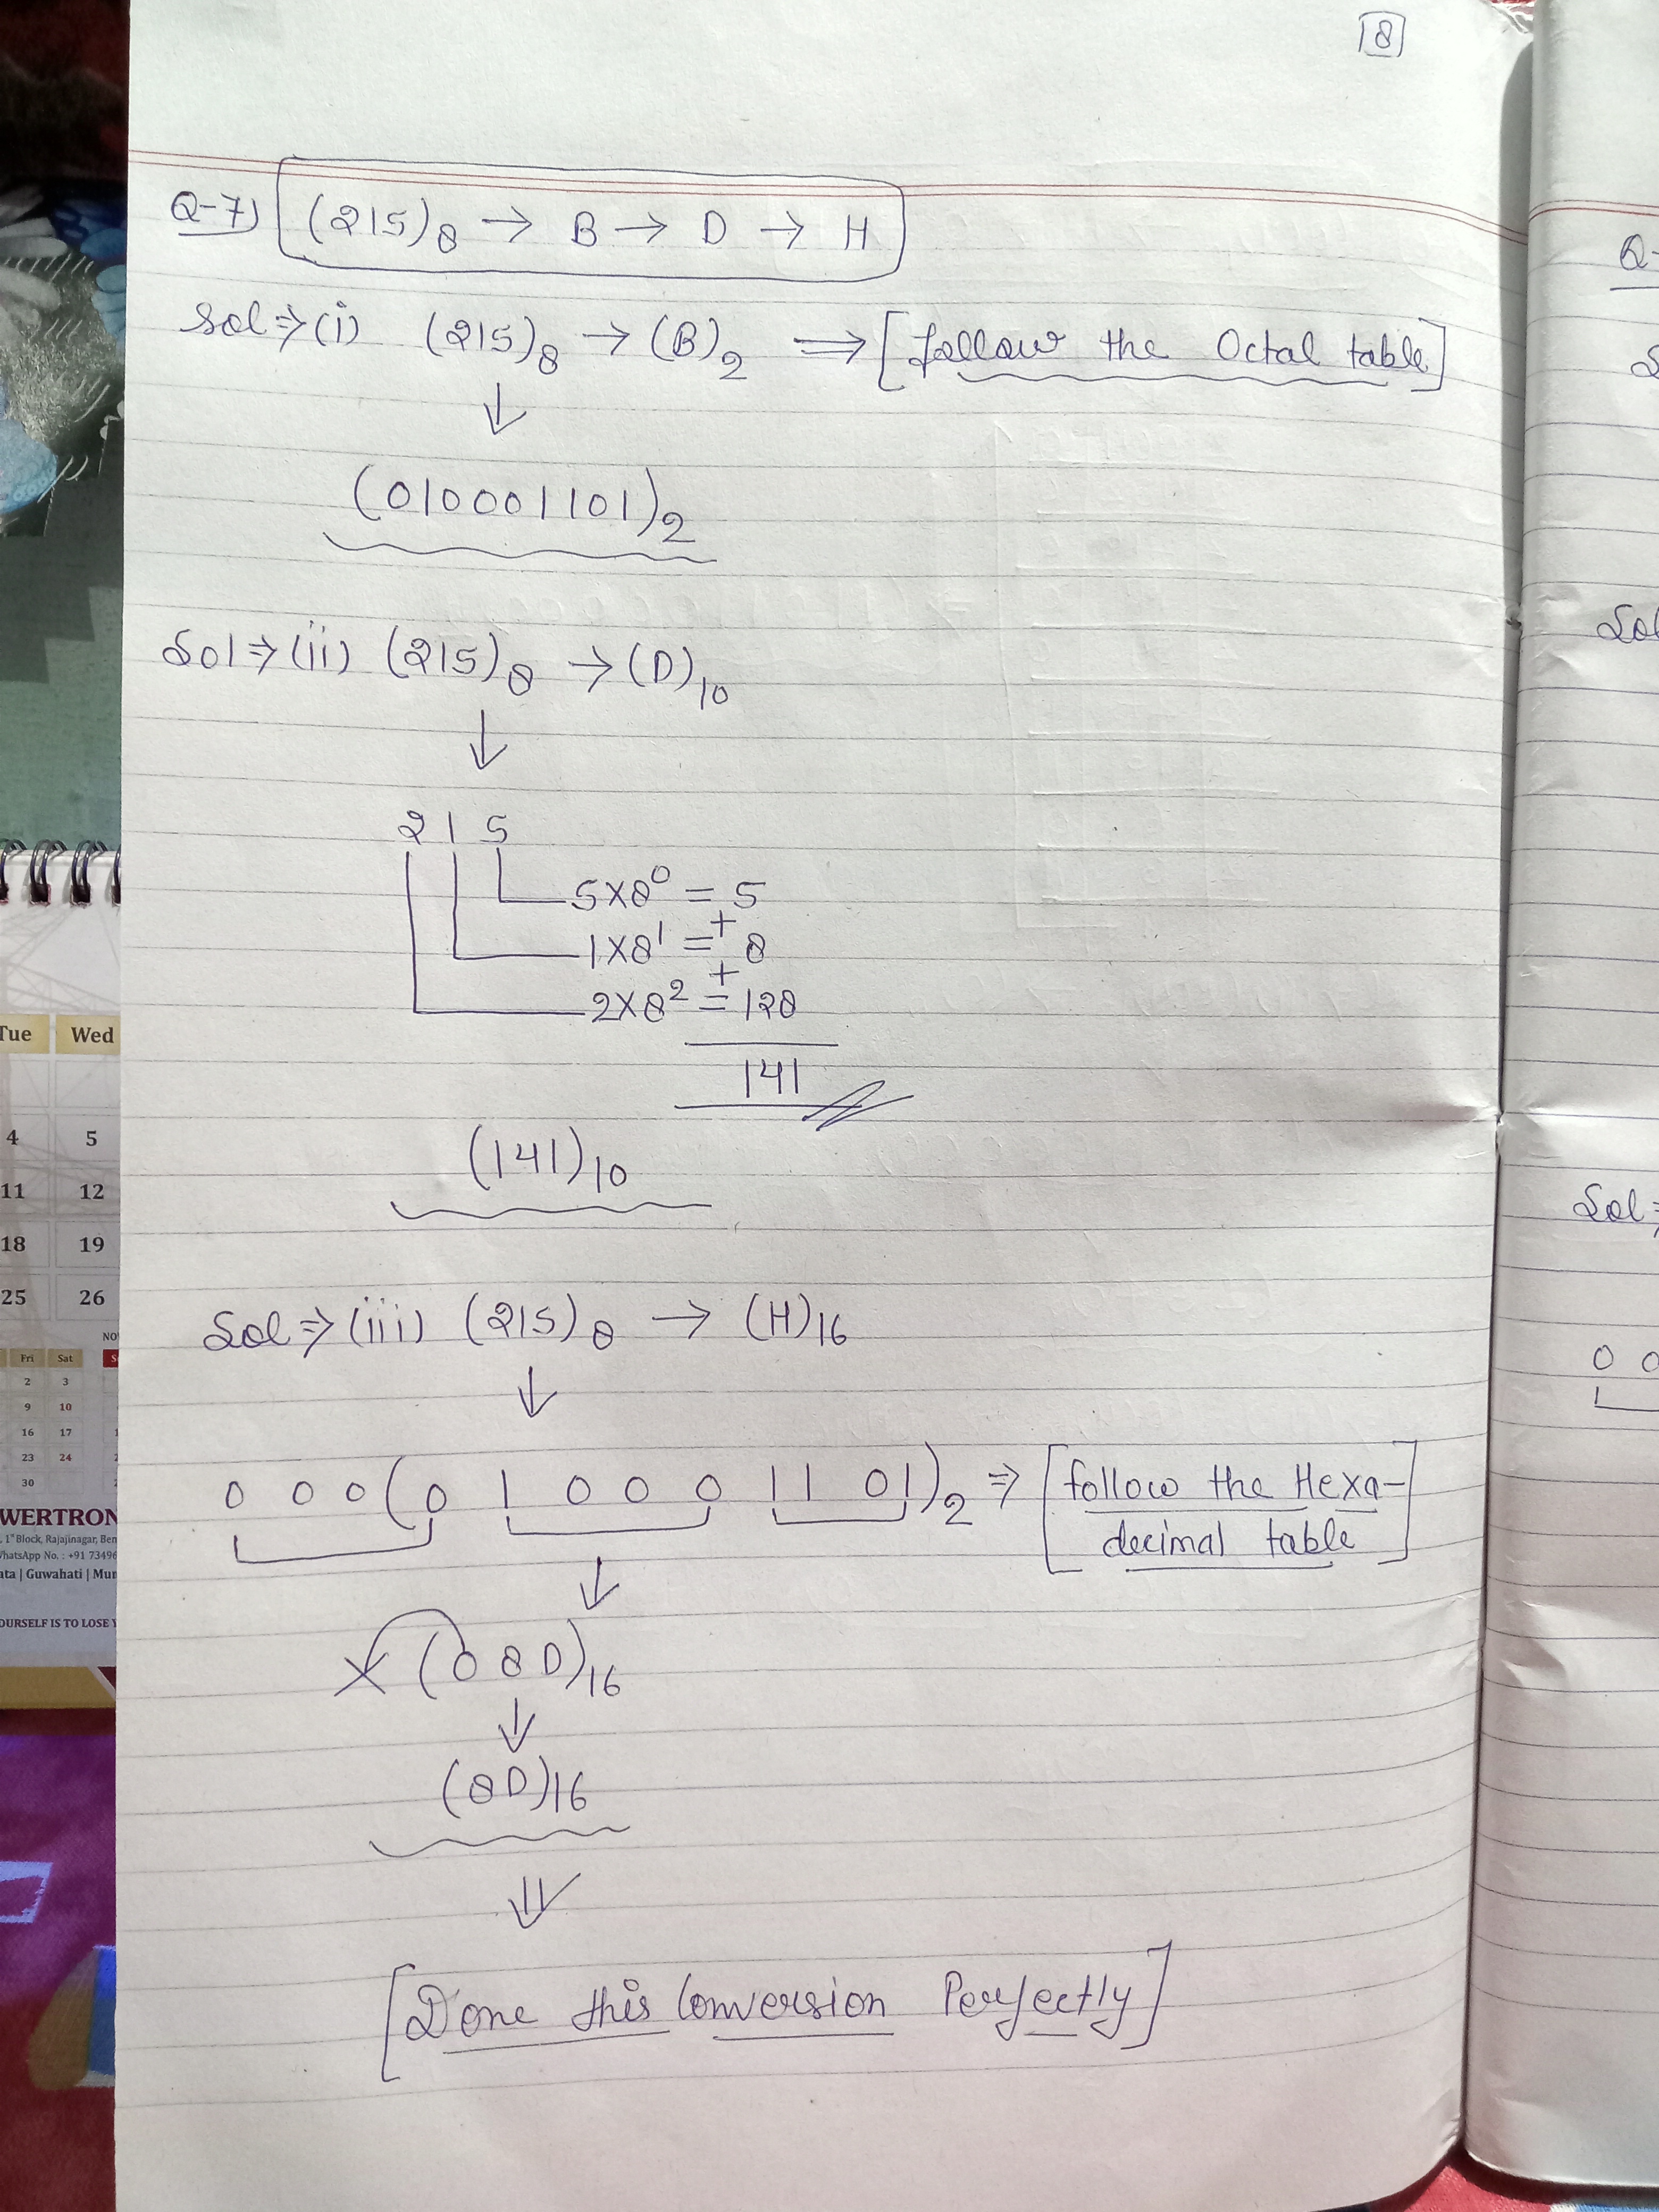 8
Q-7) (215)8 → B → D → H
Sol⇒(i) (215)8 → (B)2 ⇒ [follow the Octal table]
↓
(010001101)2
Sol⇒(ii) (215)8 → (D)10
↓
2 1 5
5×8⁰ = 5
+
1×8¹ = 8
+
2×8² = 128
141
(141)10
Sol⇒(iii) (215)8 → (H)16
↓
0 0 0 (0 1 0 0 0 1 1 0 1)2 ⇒ [follow the Hexa-
decimal table]
↓
× (0 8 D)16
↓
(8D)16
⇓
[Done this Conversion Perfectly]
Q-
Sol
Sol⇒
0 0
Tue Wed
4 5
11 12
18 19
25 26
NO
Fri Sat S
2 3
9 10
16 17
23 24
30
WERTRON
, 1st Block, Rajajinagar, Ben
WhatsApp No. : +91 73496
ata | Guwahati | Mum
OURSELF IS TO LOSE Y